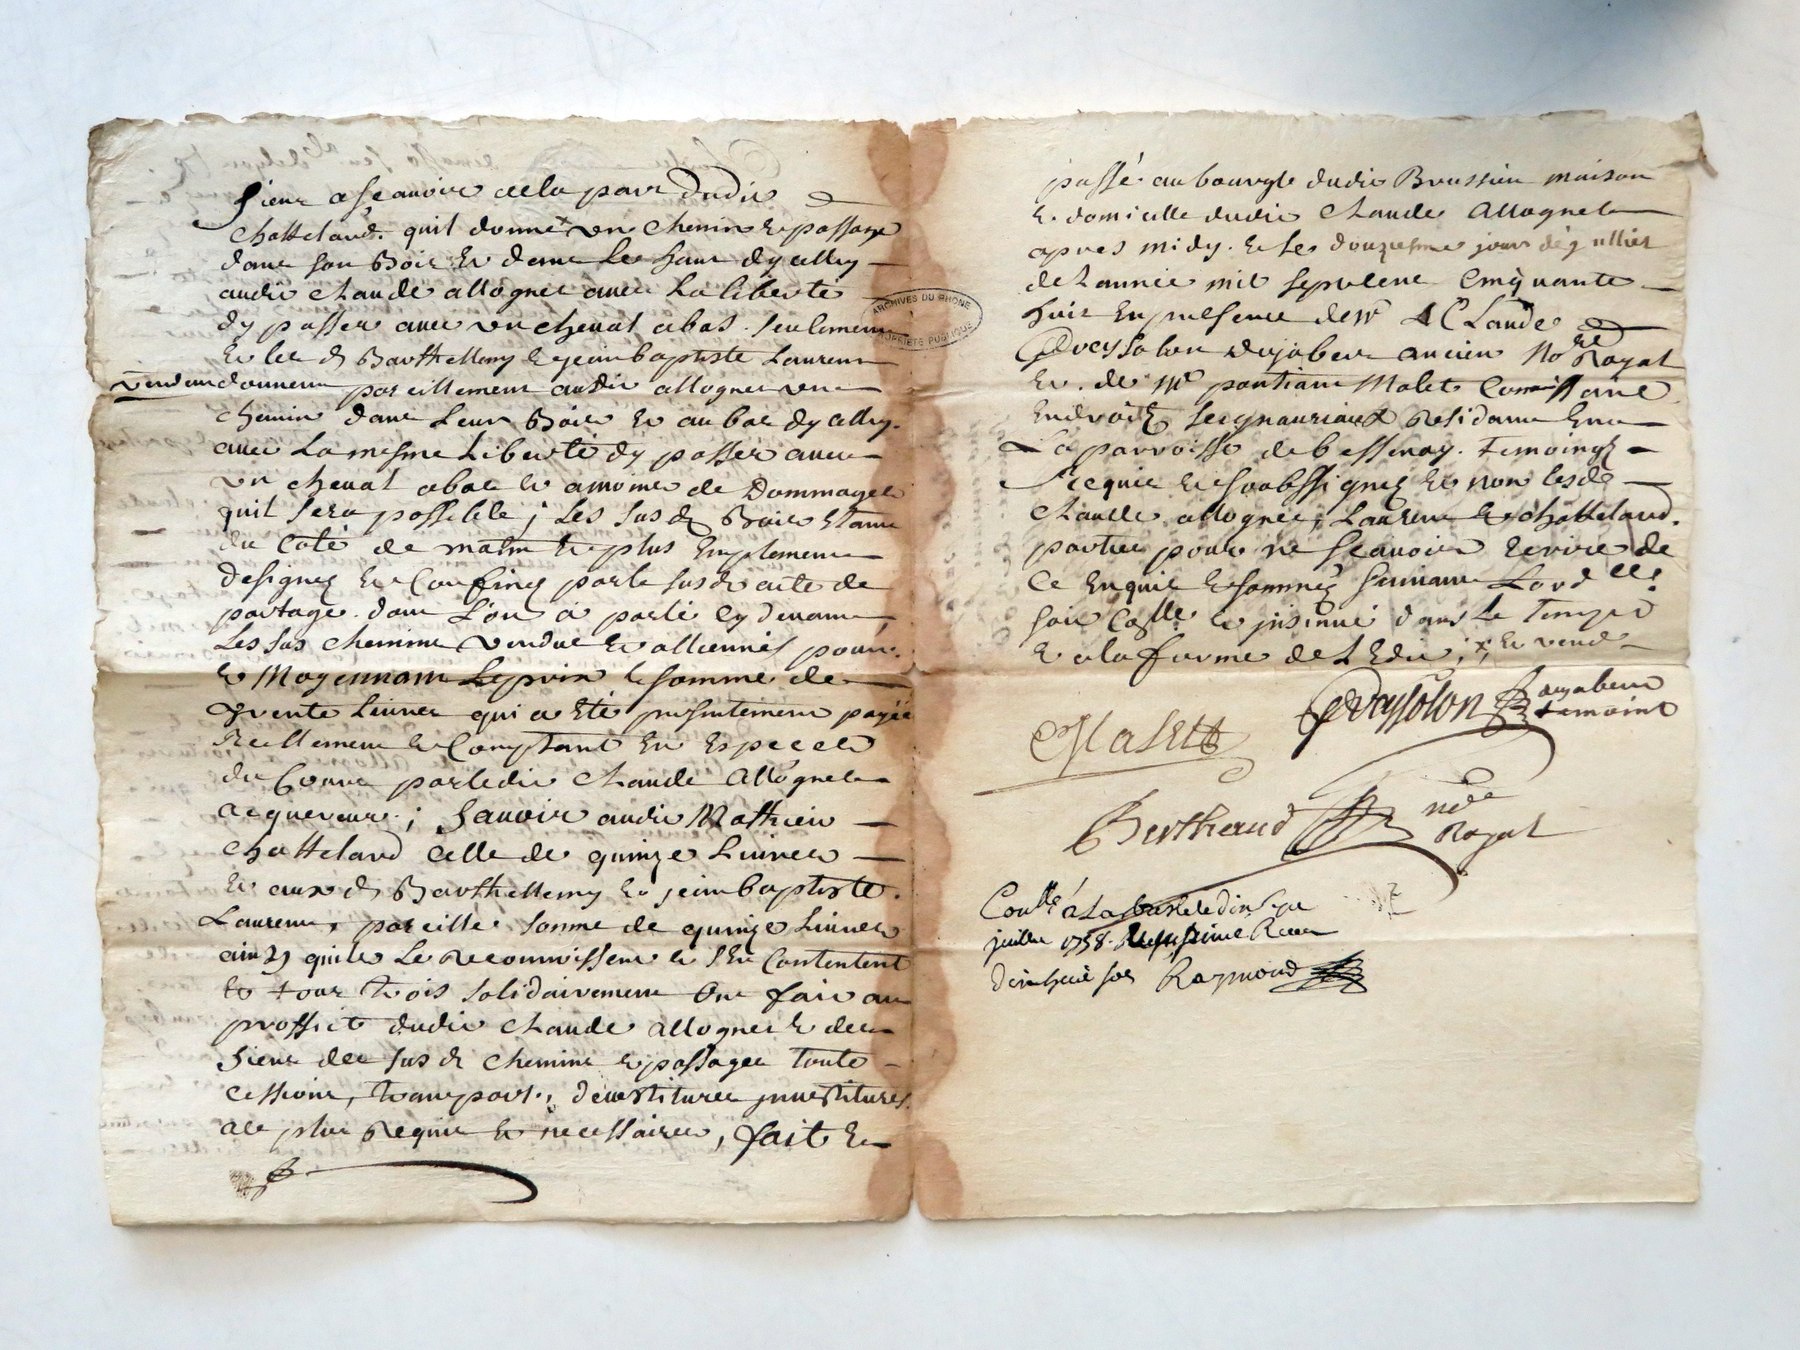 siens a scavoir de la part dudit
chatteland quil donne x un chemin et passage
dans son Bois et dans le haut dycelluy
audit claude allognet avec la liberté
dy passer avec un cheval abas seulement
et les d Barthellemy et jean baptiste Laurent
vendent donnent pareillement audit allognet un
chemin dans leur Bois et au bas dycelluy
avec la mesme Liberté dy passer avec
un cheval abas et a moins de Dommages
quil sera possible ; les susd Bois etant
du coté de matin et plus emplement
designez et confinez par le susdit acte de
partage dont l'on a parlé cy devant,
les sus chemins vendus et alliennés pour
et moyennant le prix et somme de
trente livres qui a eté presentement payée
reellement et comptant en especes
du cours par ledit claude allognet
acquereur ; savoir audit Mathieu
chatteland celle de quinze livres
et aux d Barthellemy et jean baptiste
Laurent, pareille somme de quinze livres
ainsy quils le reconnoissent et s'en contentent
et tous trois solidairement ont fait au
proffict dudit claude allognet et des
siens des susd chemins et passages toute
cessions, transport, devestitures investitures
a ce plus requis et necessaires, fait et
ARCHIVES DU RHONE
PROPRIETE PUBLIQUE
passé au bourg dudit Brussieu maison
et domicille dudit claude allognet
apres midy et le douziesme jour de juillet
de l'année mil sept cent cinquante
huit en presence de Me Claude
Gveyssolon dujabert ancien nore Royal
et de Me pontiant Malet commissaire
en droits seigneuriaux residants en
La parroisse de bessenay temoings
requis et soubssignez et non lesd
claude allognet, Laurent et chatteland
parties pour ne scavoir ecrire de
ce enquis et sommez suivant l'ord
soit collé et insinué dans le temps
et a la forme de l'edit ; x et vend
Malet
Gveyssolon dujabert
temoint
Bertheaud nore
Royal
Conllé a la
juillet 1758. Reçu
Raymond